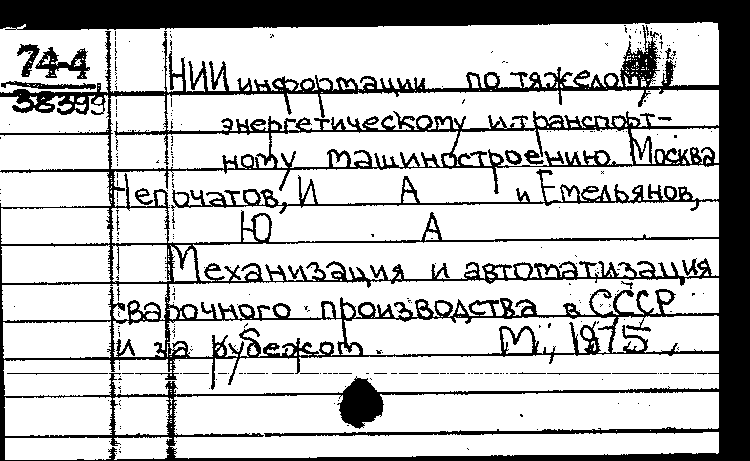 74-4
38399
НИИ информации по тяжелому,
энергетическому и транспорт-
ному машиностроению. Москва
Непочатов, И А и Емельянов,
Ю А
Механизация и автоматизация
сварочного производства в СССР
и за рубежом. М., 1975,